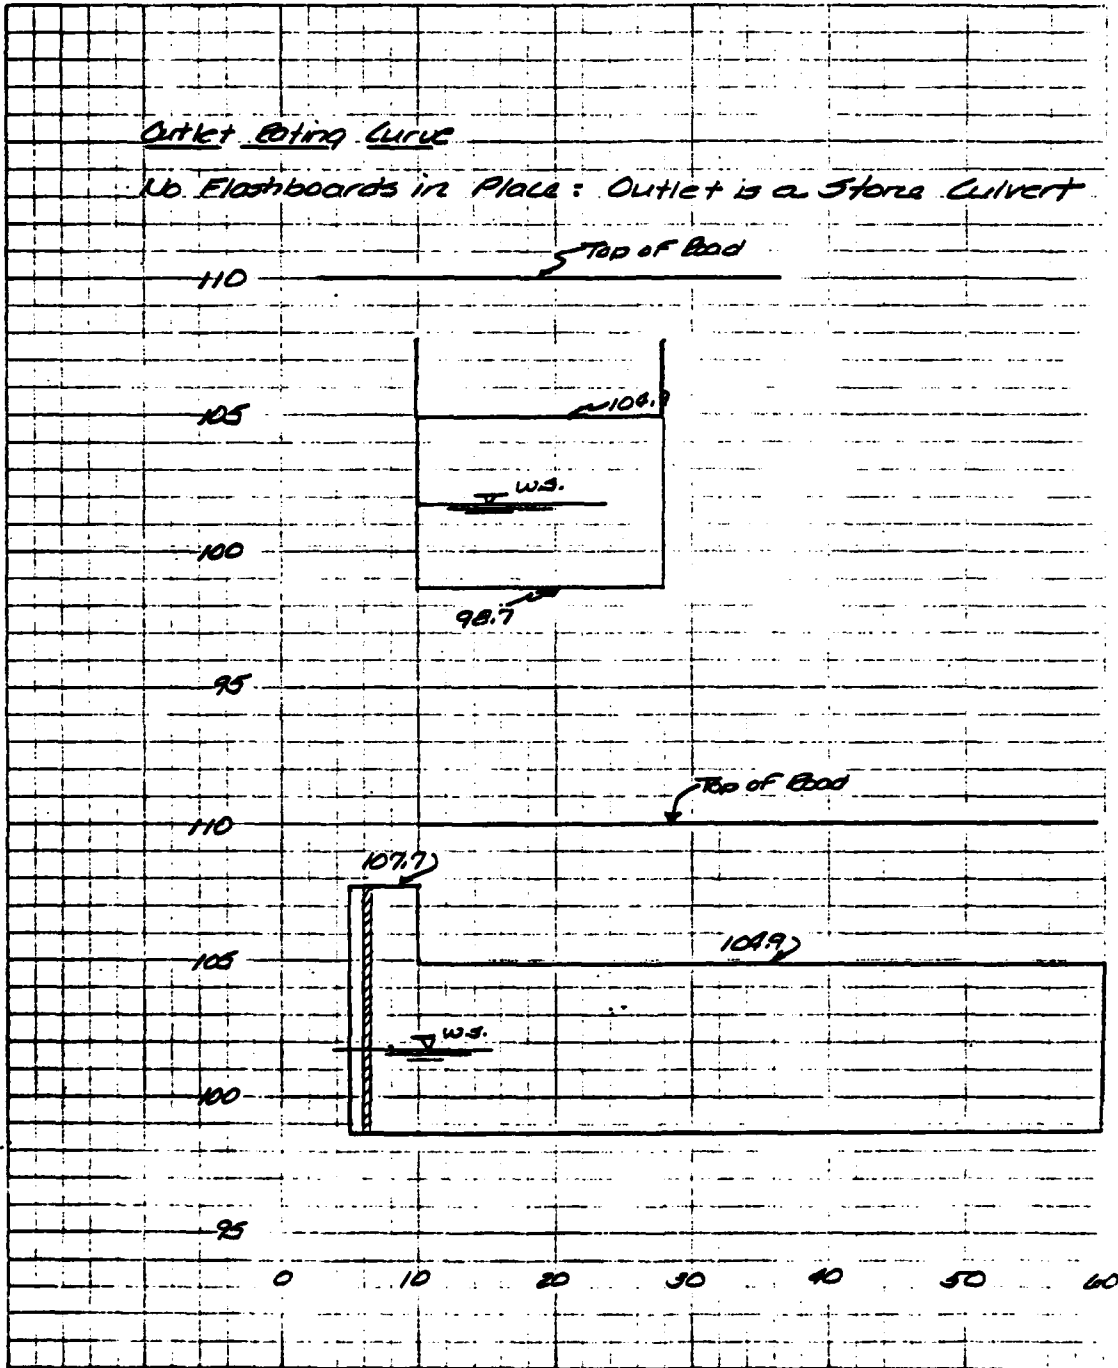 Outlet Rating Curve
No Flashboards in Place: Outlet is a Stone Culvert
Top of Road
110
105
104.9
W.S.
100
98.7
95
Top of Road
110
107.7
105
104.9
W.S.
100
95
0 10 20 30 40 50 60